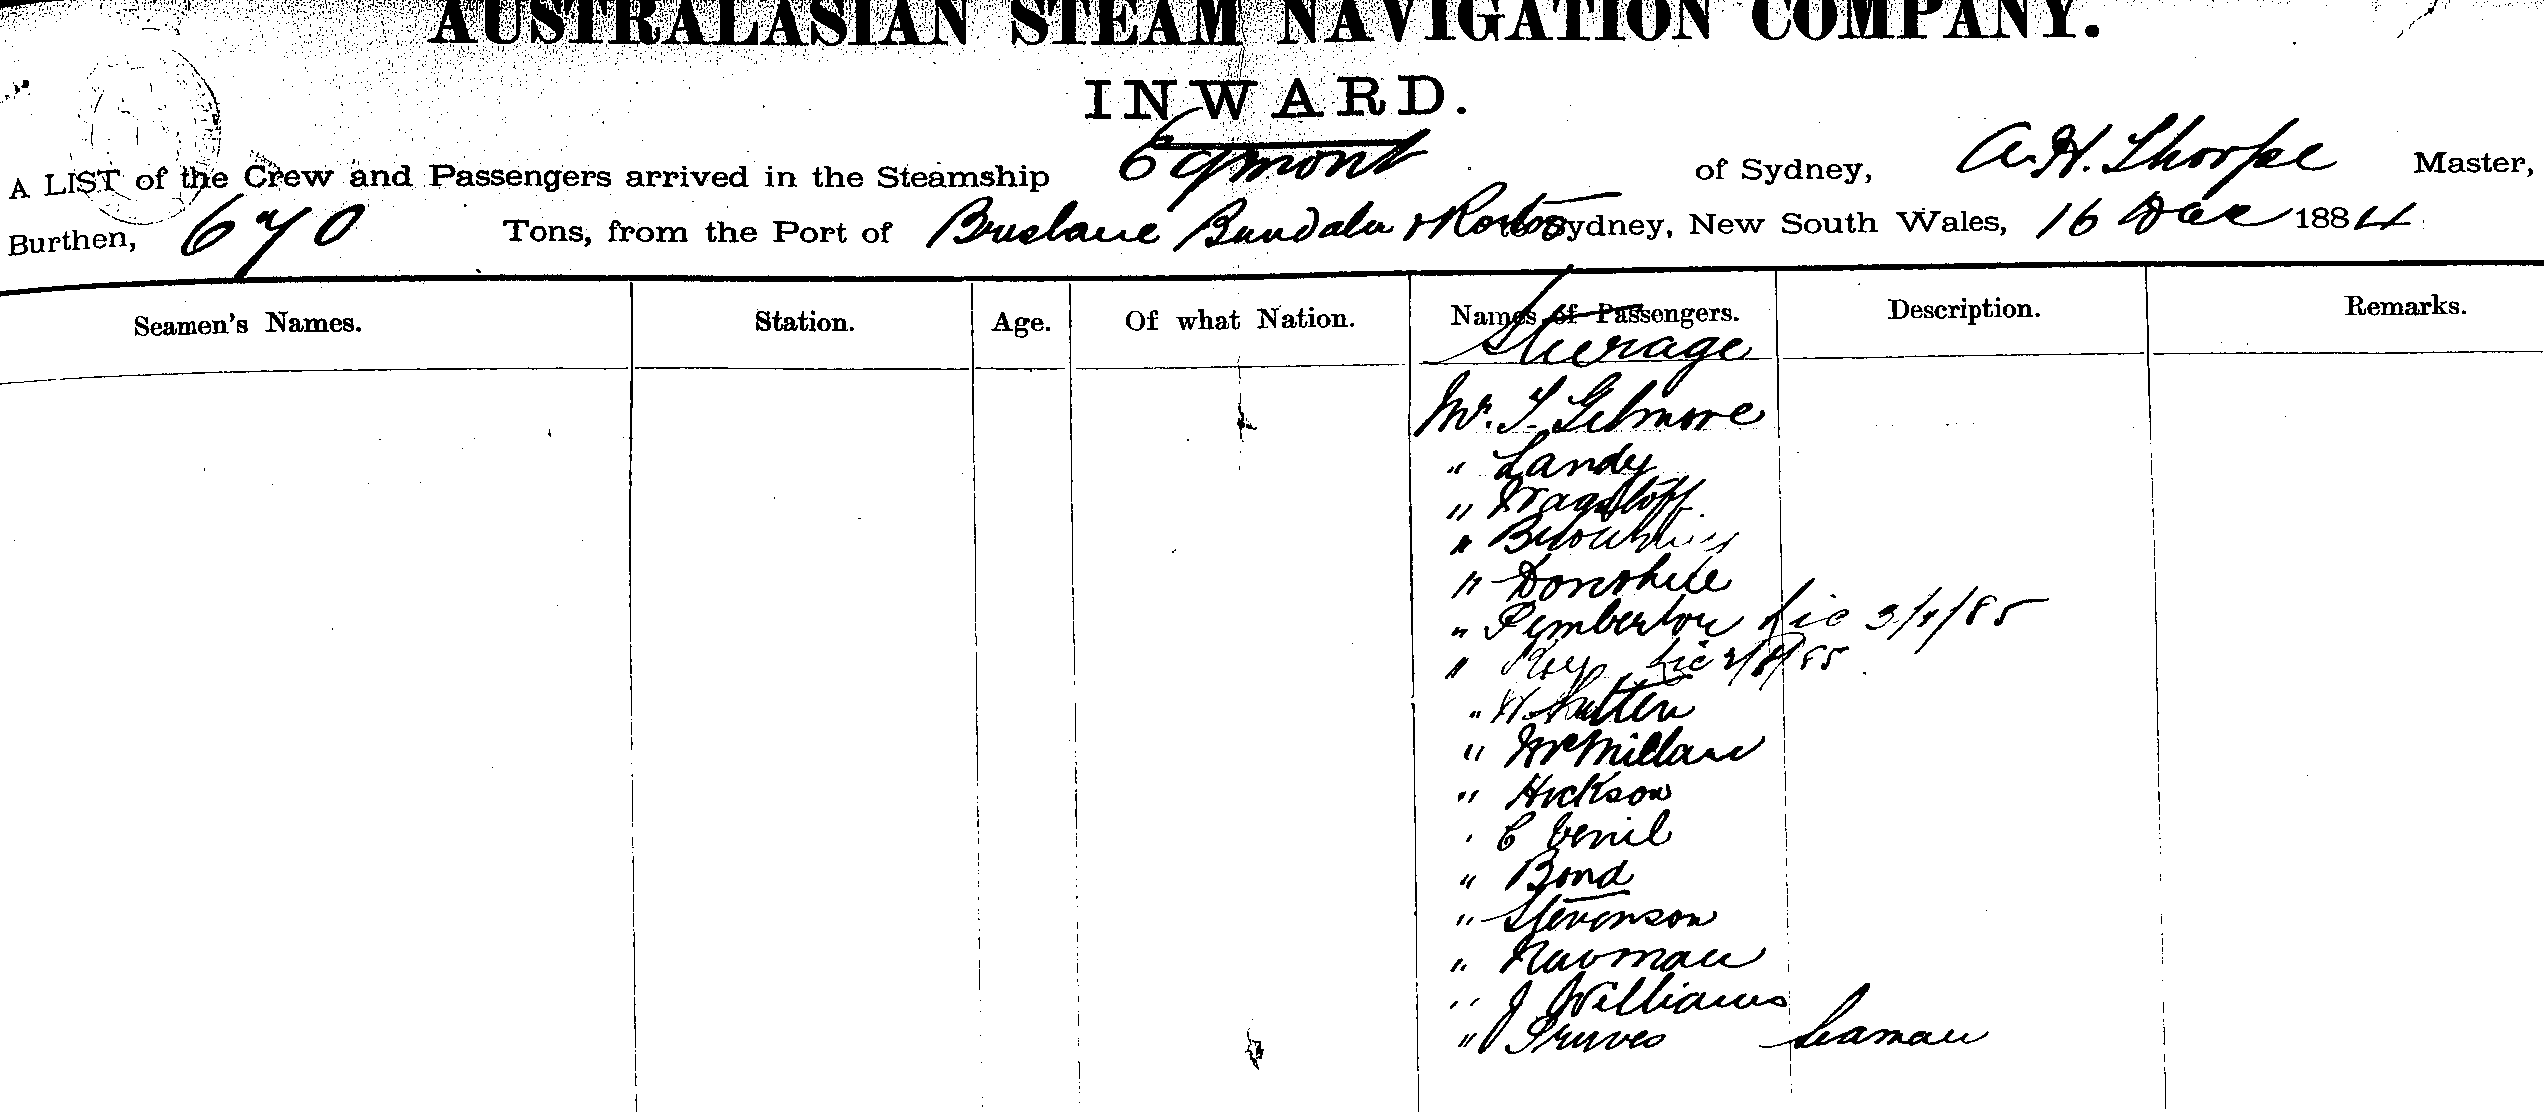 AUSTRALASIAN STEAM NAVIGATION COMPANY.
INWARD.
A LIST of the Crew and Passengers arrived in the Steamship Egmont of Sydney, A. H. Thorpe Master,
Burthen, 670 Tons, from the Port of Brisbane Bundabu & to Sydney, New South Wales, 16 Dec 1884
Seamen's Names. Station. Age. Of what Nation. Names of Passengers. Description. Remarks.
Steerage
Mr. T. Gilmore
" Landy
" Wagstoff
" Browning
" Donohue
" Pemberton
" Key
" W.
" McMillan
" Hickson
" C
" Bond
" Stevenson
" Nauman
" J Williams
" Seaman